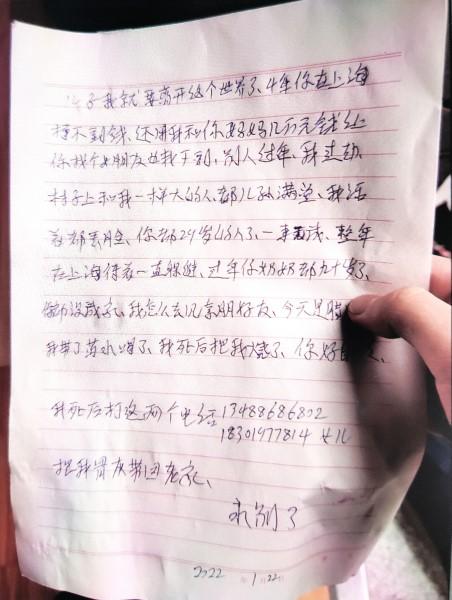 子我就要离开这个世界了、4年你在上海
挣不到钱、还用我和你妈妈几万元钱
你找个女朋友也找不到,别人过年、我过劫
村子上和我一样大的人、都儿孙满堂、我活
着都丢脸、你都29岁的人了、一事无成、整年
在上海待着一直躲避、过年你奶奶都九十岁了、
你都没成家、我怎么去见亲朋好友、今天是腊
我带了药水喝了、我死后把我烧了、你好
我死后打这两个电话13488686802
18301977814 女儿
把我骨灰带回老家、
永别了
2022 年 1 月 22 日